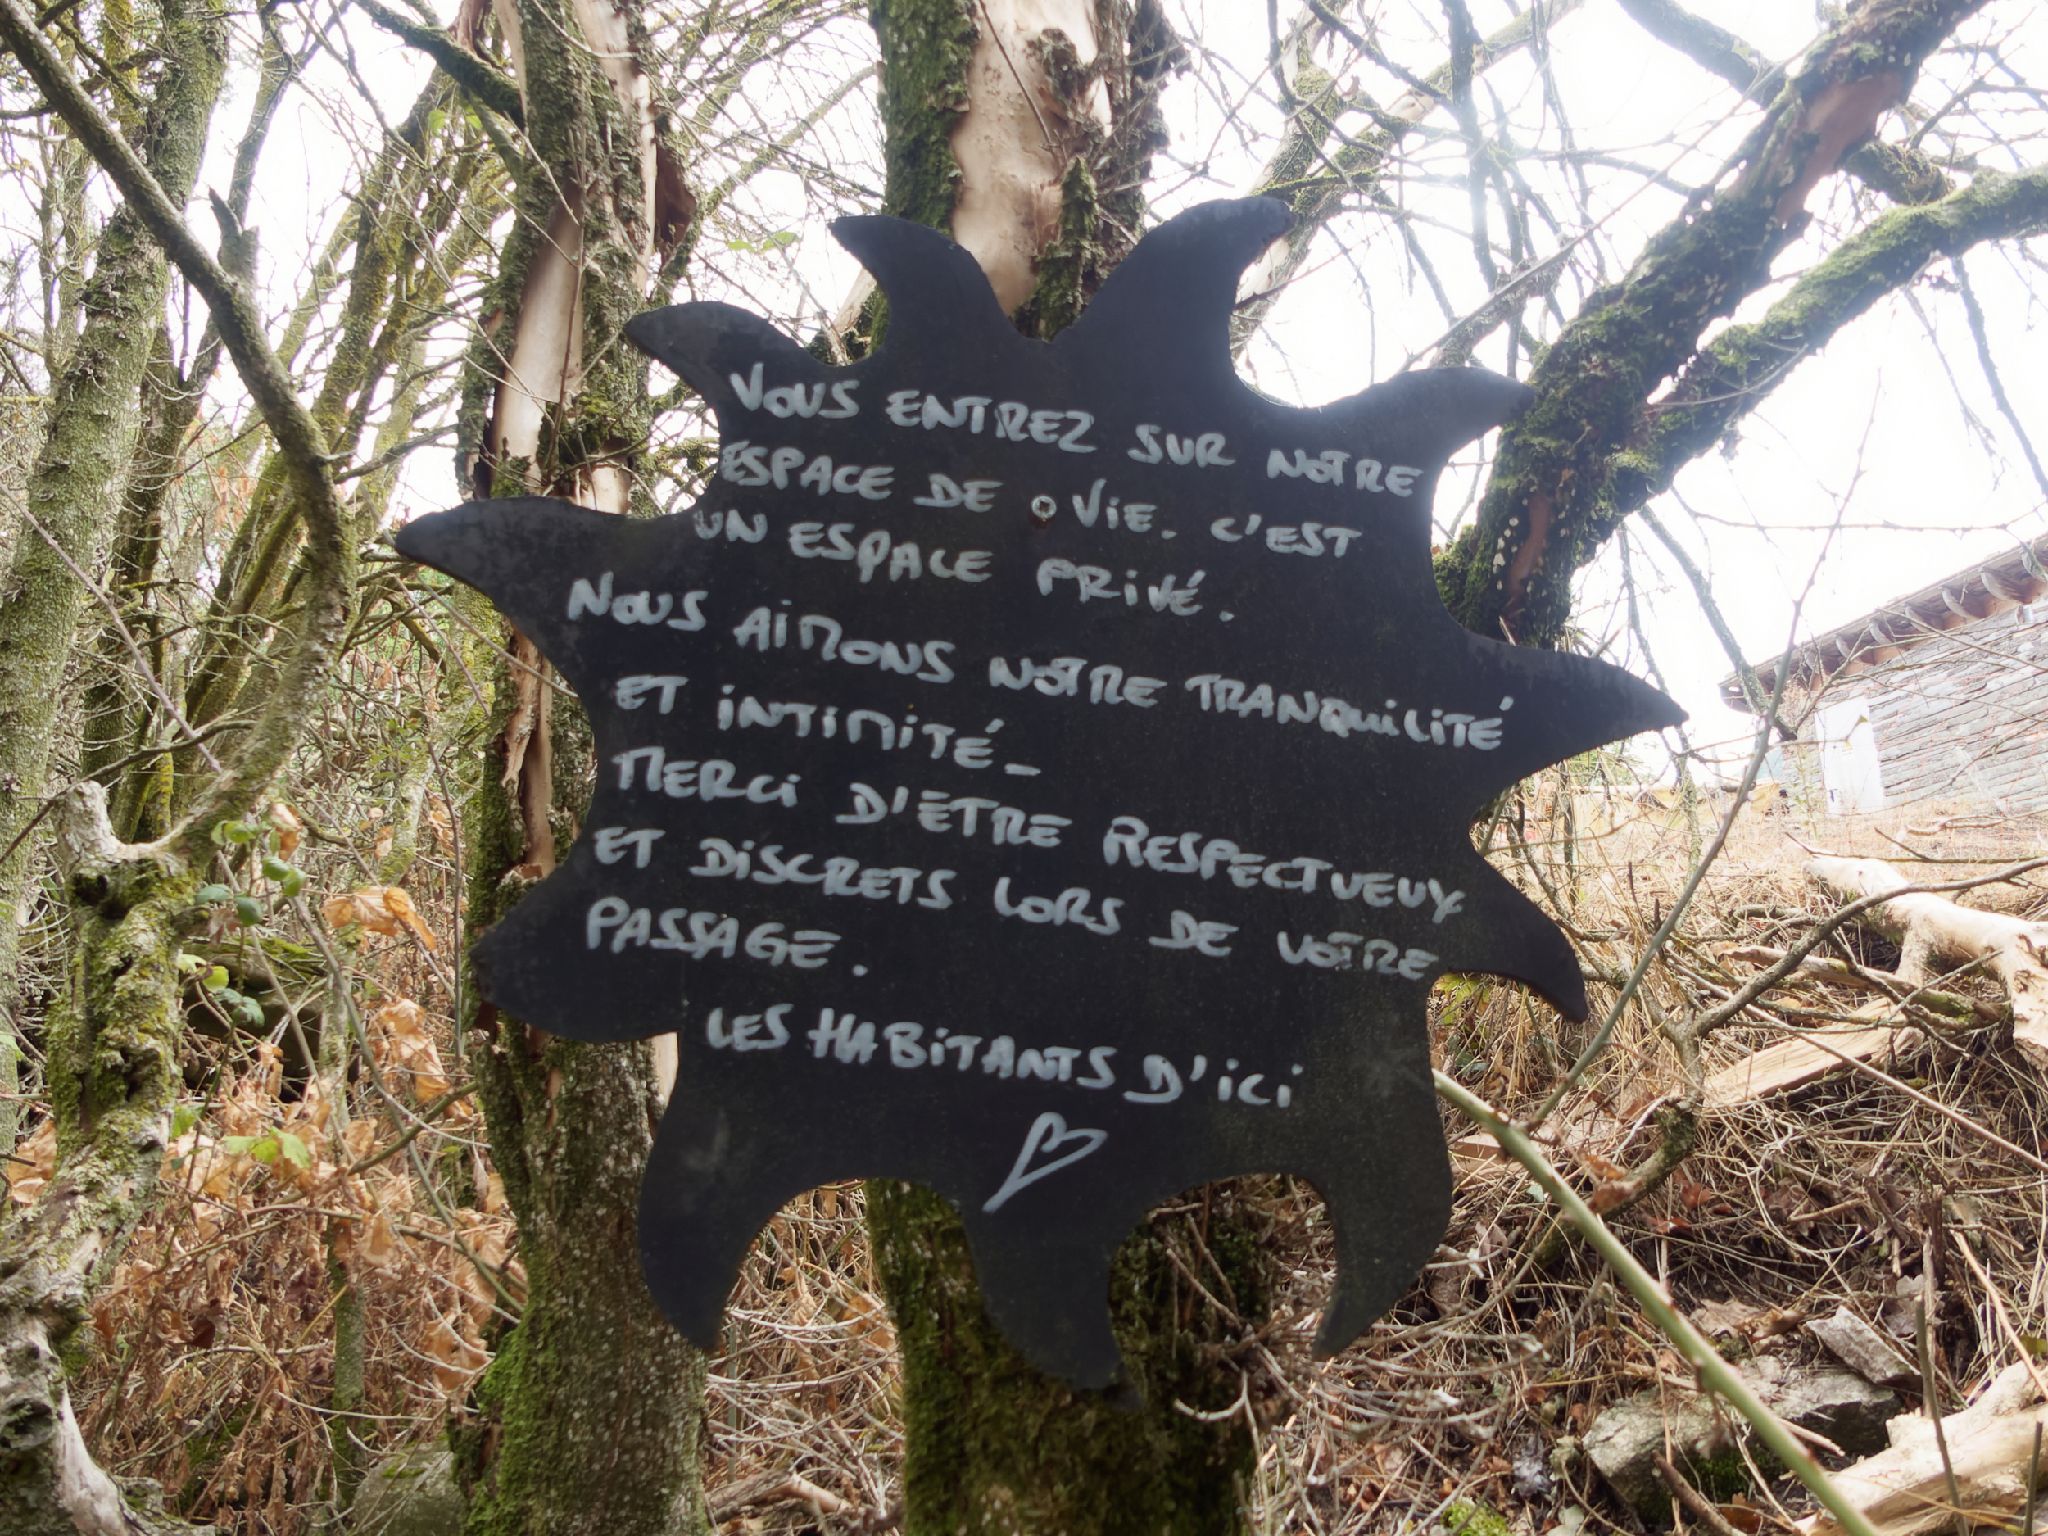 VOUS ENTREZ SUR NOTRE
ESPACE DE VIE. C'EST
UN ESPACE PRIVÉ.
NOUS AIMONS NOTRE TRANQUILITÉ
ET INTIMITÉ_
MERCI D'ÊTRE RESPECTUEUX
ET DISCRETS LORS DE VOTRE
PASSAGE.
LES HABITANTS D'ICI